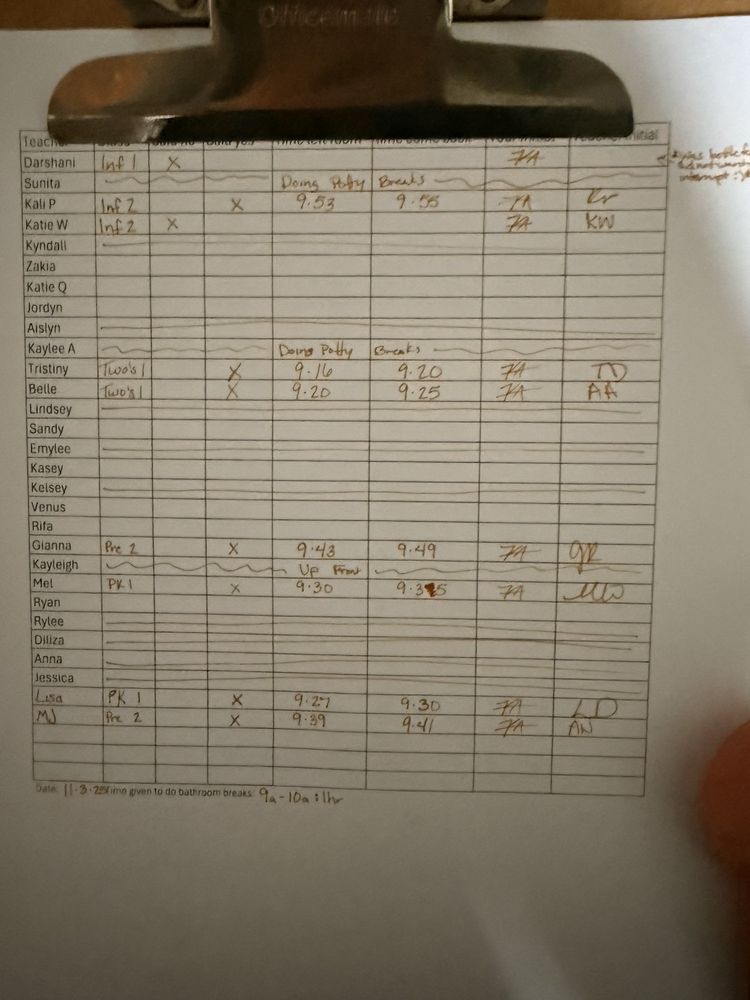 Officemate
Darshani Inf 1 X FA
Sunita Doing Potty Breaks
Kali P Inf 2 X 9:53 9:55 FA
Katie W Inf 2 X FA KW
Kyndall
Zakia
Katie Q
Jordyn
Aislyn
Kaylee A Doing Potty Breaks
Tristiny Two's 1 X 9:16 9:20 FA TD
Belle Two's 1 X 9:20 9:25 FA AA
Lindsey
Sandy
Emylee
Kasey
Kelsey
Venus
Rifa
Gianna Pre 2 X 9:43 9:49 FA GR
Kayleigh Up Front
Mel PK 1 X 9:30 9:35 FA MW
Ryan
Rylee
Diliza
Anna
Jessica
Lisa PK 1 X 9:27 9:30 FA LD
MJ Pre 2 X 9:39 9:41 FA AN
Date: 11·3·25 Time given to do bathroom breaks: 9a-10a : 1hr